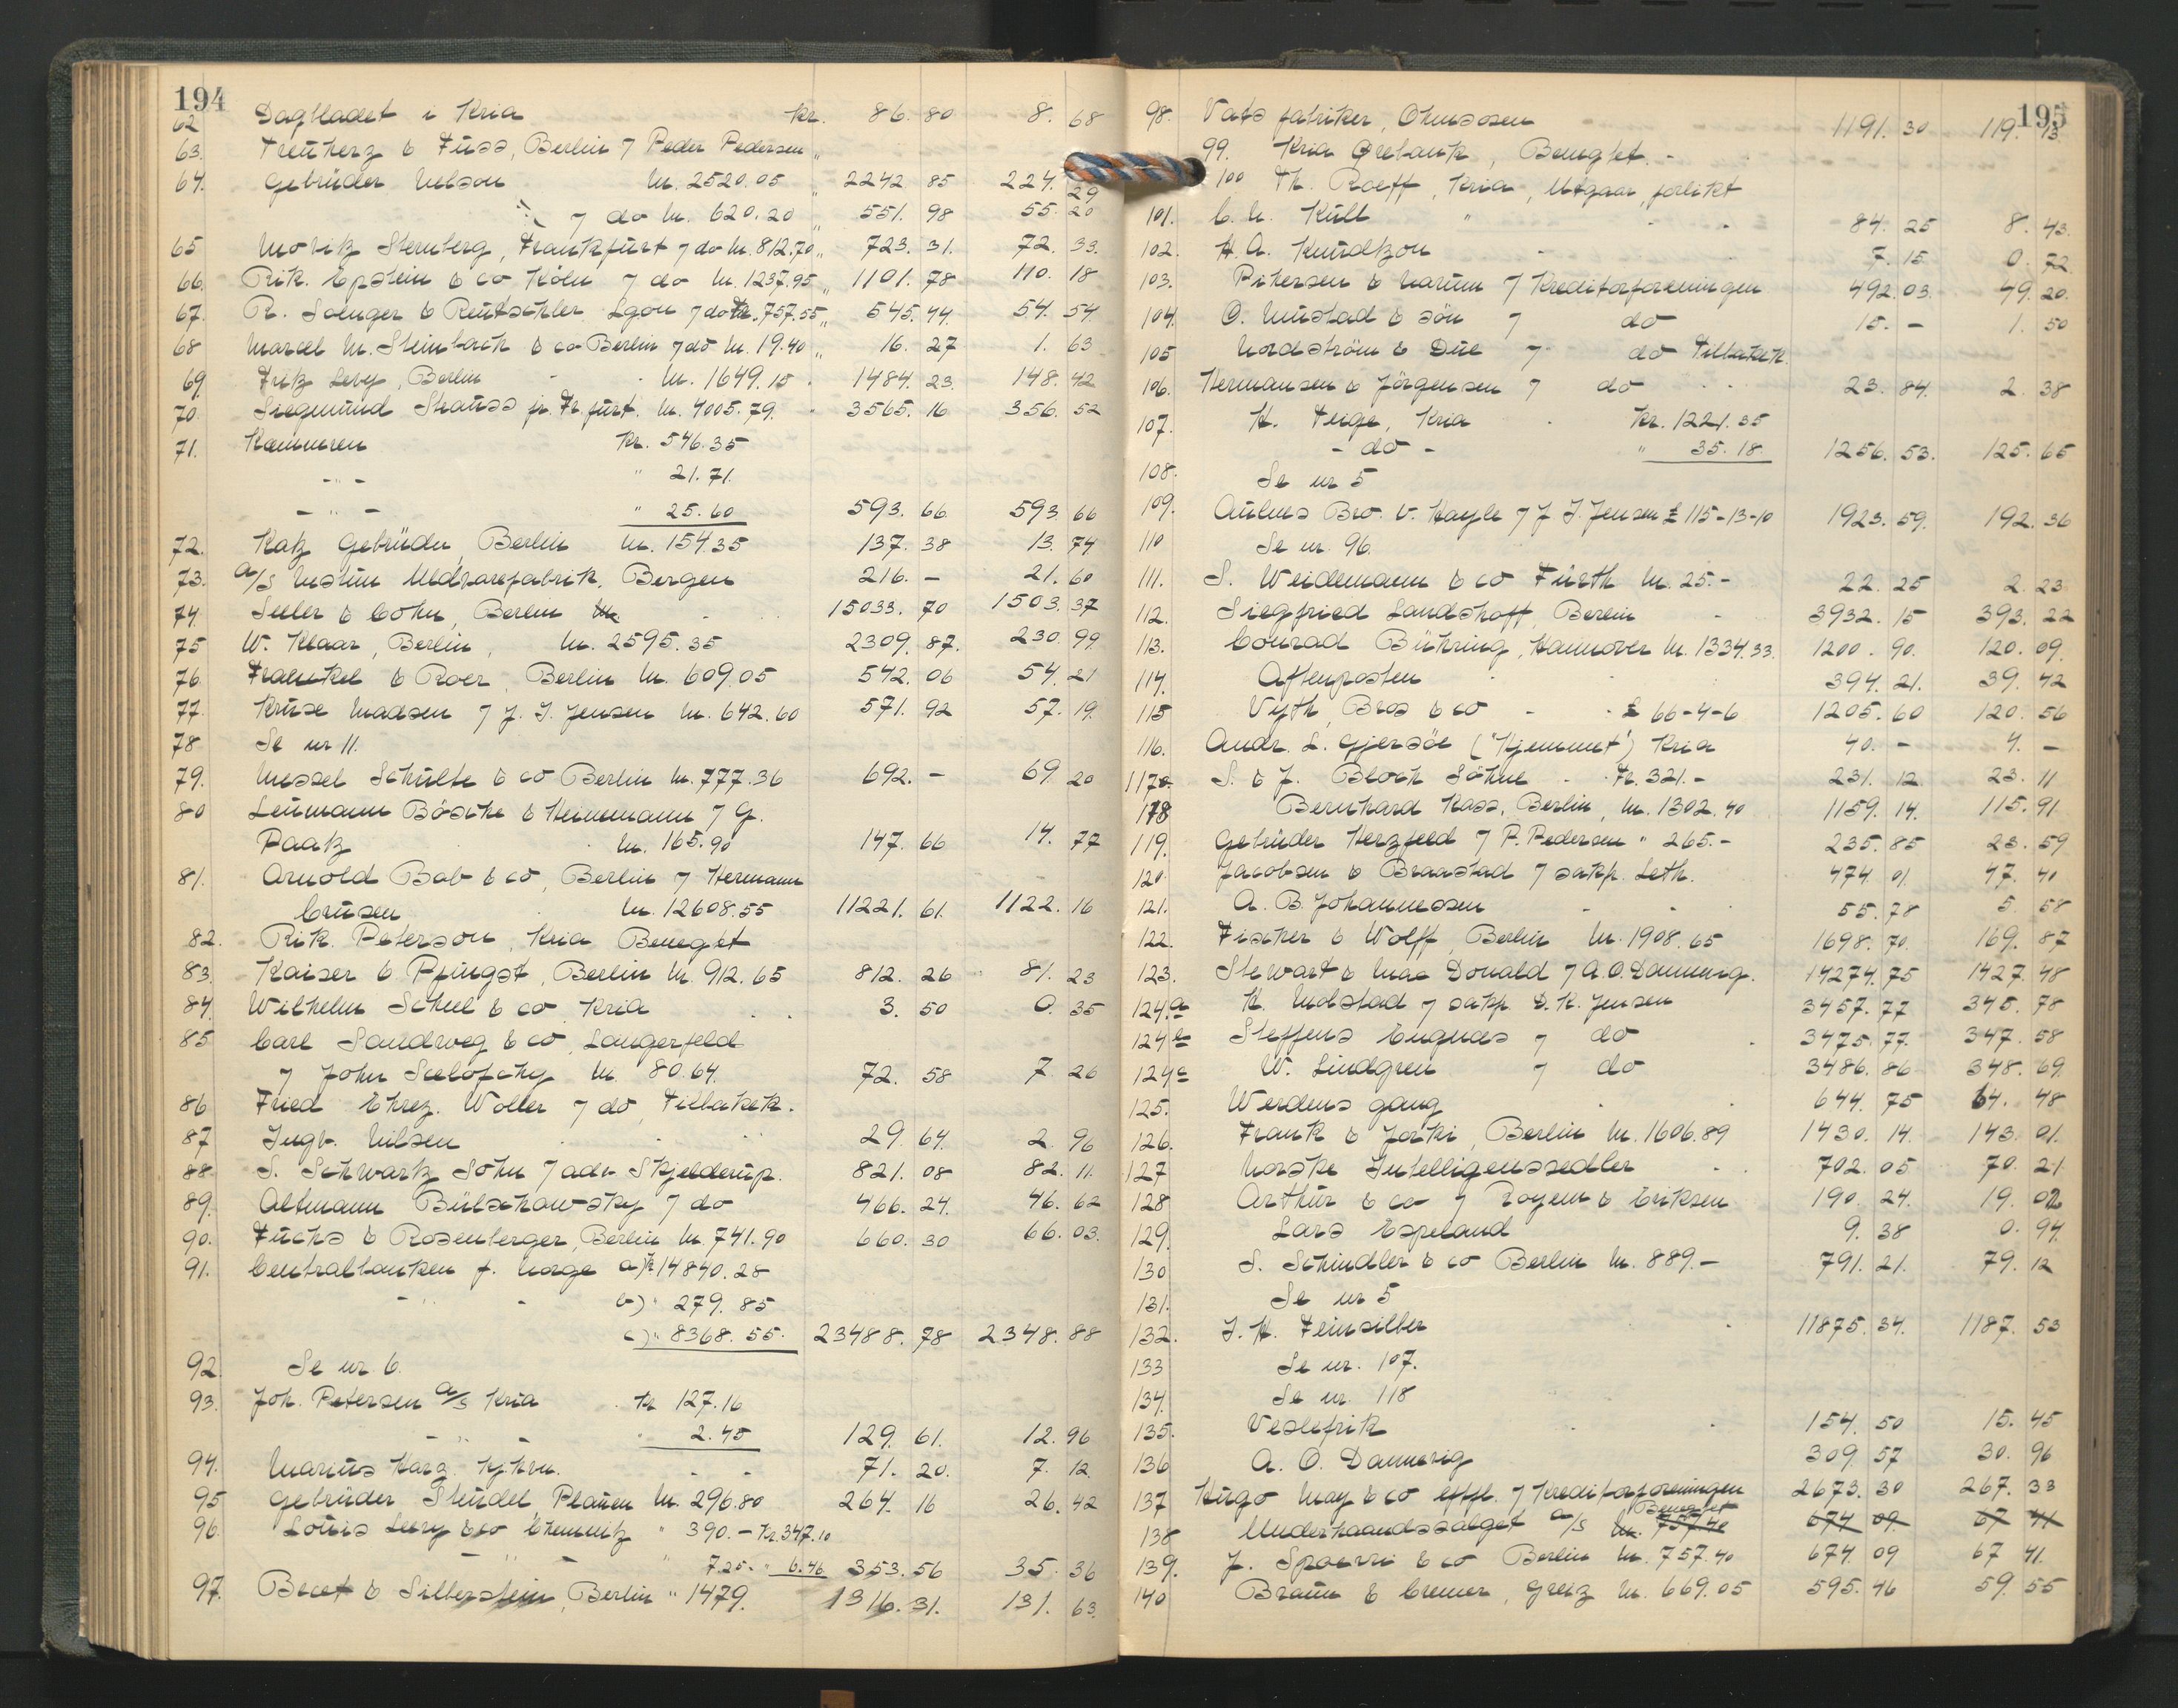 194
62 Dagbladet i Kria kr. 86. 80 8. 68
63. Treuherz & Füss, Berlin 7 Peder Pedersen "
64. Gebrüder Nelson M. 2520.05 " 2242 85 224. 29
" 7 do M. 620.20 " 551. 98 55. 20
65 Moritz Sternberg, Frankfurt 7 do M. 812.70 " 723. 31. 72. 33.
66. Rik. Epstein & co Köln 7 do M. 1237.95 " 1101. 78 110. 18
67. R. Saenger & Reutschler Lyon 7 do fr. 757.55 " 545. 44. 54. 54
68 Marcel M. Steinbock & co Berlin 7 do M. 19.40 " 16. 27 1. 63
69. Fritz Levy, Berlin M. 1649.15 1484. 23. 148. 42
70. Siegmund Strauss jr. Fr.furt. M. 4005.79. 3565. 16 356. 52
71. Kæmneren Kr. 546.35
- " - " 21.71.
- " - " 25.60 593. 66. 593. 66
72. Katz Gebrüder, Berlin M. 154.35 137. 38 13. 74
73. A/s Mstun Uldvarefabrik, Bergen 216. - 21. 60
74. Seeler & Cohn, Berlin 15033. 70 1503. 37
75 W. Klaar, Berlin, M. 2595.35 2309. 87. 230. 99
76. Fraenkel & Roer, Berlin M. 609.05 542. 06 54. 21
77. Kruse Madsen 7 J. J. Jensen M. 642.60 571. 92 57. 19.
78 Se nr 11.
79. Messel Schulte & co Berlin M. 777.36 692. - 69. 20
80 Leumann Böscke & Heinemann 7 G.
Paatz M. 165.90 147. 66 14. 77
81. Arnold Bab & co, Berlin 7 Hermann
Crusen M. 12608.55 11221. 61. 1122. 16
82. Rik. Peterson, Kria Beneget
83. Kaiser & Pfingst, Berlin M. 912.65 812. 26 81. 23
84. Wilhelm Scheel & co Kria 3. 50 0. 35
85 Carl Sandweg & co, Langerfeld
7 John Seelofchy M. 80.64. 72. 58 7. 26
86 Fried Ehrez. Woller 7 do, Tilbakek.
87 Ingv. Nilsen 29. 64. 2. 96
88. S. Schwartz Sohn 7 adv Skjelderup. 821. 08 82. 11.
89. Altmann Bülschowsky 7 do 466. 24. 46. 62
90. Fuchs & Rosenberger, Berlin M. 741.90 660. 30 66. 03.
91. Centralbanken f. Norge a) Kr 14840.28
- " - b) " 279.85
c) " 8368.55. 23488. 78 2348. 88
92. Se nr. 6.
93. Joh. Petersen A/s Kria Kr 127.16
- " - " 2.45 129. 61. 12. 96
94. Marius Karz. Kj.hvn. 71. 20. 7. 12.
95 Gebrüder Steudel Plauen M. 296.80 264. 16 26. 42
96. Louis Levy & co Chemnitz " 390.- Kr. 347.10
- " - " 7.25- " 6.46 353. 56 35. 36
97. Becet & Silberstein, Berlin " 1479. 1316. 31. 131. 63.
195
98. Vats fabriker, Ohnsosen 1191. 30 119. 13
99. Kria Örebank, Beneget -
100 Th. Roeff, Kria, Utgaar, forlikt
101. C. M. Kull " 84. 25 8. 43.
102. H. A. Knudtzon 7. 15 0. 72.
103. Pihersen & Narum 7 Kreditorforeningen 492. 03. 49. 20.
104 O. Mustad & Sön 7 do 15. - 1. 50
105 Nordström & Due 7 do Tilbakek.
106. Hermansen & Jörgensen 7 do 23. 84. 2. 38
107. H. Teige, Kria Kr. 1221.35
- do - " 35.18 1256. 53. 125. 65
108. Se nr 5
109. Aulms Bro. v. Hagle 7 J. J. Jensen £ 115-13-10 1923. 59. 192. 36
110 Se nr. 96.
111. S. Weidemann & co Fürth M. 25.- 22. 25 2. 23.
112. Siegfried Landshoff, Berlin 3932. 15 393. 22
113. Conrad Bühring, Hannover M. 1334.33. 1200. 90. 120. 09.
114. Aftenposten 394. 21. 39. 42
115 Vyth Bros & co £ 66-4-6 1205. 60 120. 56
116. Andr. L. Gjersöe ("Hjemmet") Kria 40. - 4. -
117. S. & J. Bloch Söhne fr. 321.- 231. 12. 23. 11
118 Bernhard Kass, Berlin, M. 1302.40 1159. 14. 115. 91
119. Gebrüder Herzfeld 7 P. Pedersen " 265.- 235. 85 23. 59
120 Jacobsen & Braastad 7 sakf. Seth. 474. 01. 47. 40
121. A. B. Johannessen 55. 78 5. 58
122. Fischer & Wolff, Berlin M. 1908.65 1698. 70. 169. 87
123. Stewart & Mac Donald 7 A.O. Dannevig. 14274. 75 1427. 48
124.a K. Molstad 7 sakf. D.K. Jensen 3457. 77 345. 78
124 b Steffens Eugnas 7 do 3475. 77. 347. 58
124 c W. Lindgren 7 do 3486. 86 348. 69.
125. Werdens gang 644. 75 64. 48
126. Frank & Jorki, Berlin M. 1606.89 1430. 14. 143. 01.
127 Norske Intelligenssedler 702. 05 70. 21
128 Arthur & co 7 Royem & Eriksen 190. 24. 19. 02
129. Lars Espeland 9. 38 0. 94.
130 S. Schindler & co Berlin M. 889.- 791. 21. 79. 12
131. Se nr 5
132. J. H. Feinsilber 11875. 34. 1187. 53
133 Se nr. 107.
134. Se nr. 118
135. Veslefrik 154. 50 15. 45
136 A. O. Dannevig 309. 57 30. 96
137 Hugo May & co eftfl. 7 Kreditorforeningen 2673. 30 267. 33
Beneget
138 Underhaandssalget A/s M. 757.40 674 09. 67 41
139. J. Spaerri & co Berlin M. 757.40 674. 09 67 41.
140 Braun & Cremer, Greiz M. 669.05 595. 46 59. 55